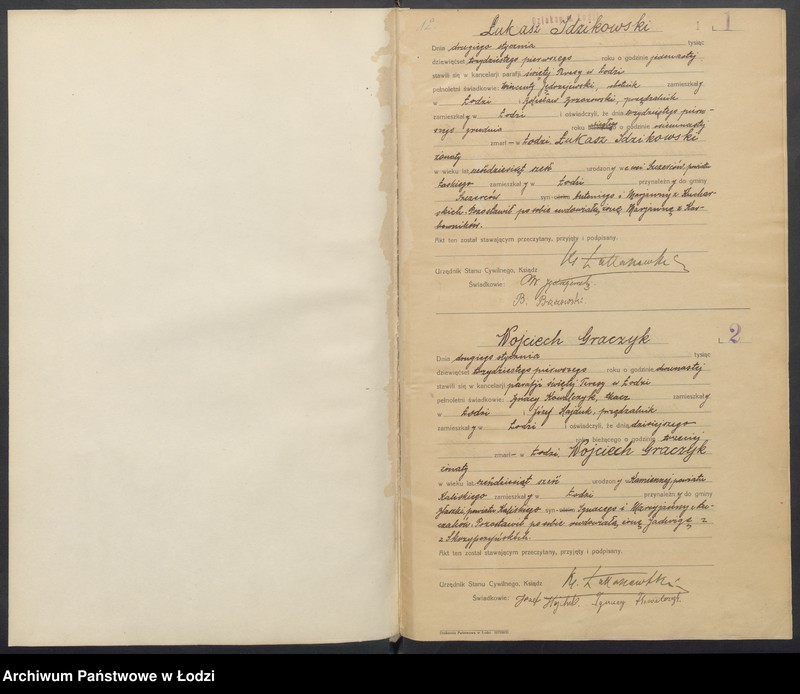 Łukasz Idzikowski
1
Dnia drugiego stycznia tysiąc
dziewięćset trzydziestego pierwszego roku o godzinie jedenastej
stawili się w kancelarji parafji świętej Teresy w Łodzi
pełnoletni świadkowie: Wincenty Jędrzejewski, robotnik zamieszkały
w Łodzi i Zdzisław prządzalnik
zamieszkały w Łodzi i oświadczyli, że dnia trzydziestego pierw-
szego grudnia roku o godzinie siedemnastej
zmarł w Łodzi, Łukasz Idzikowski
żonaty
w wieku lat sześćdziesiąt sześć urodzony we wsi Szczerców, powiatu
Łaskiego zamieszkały w Łodzi przynależny do gminy
Szczerców syn Antoniego i Marjanny z Kuchar-
skich. Pozostawił po sobie owdowiałą żonę Marjannę z Kar-
bowników.
Akt ten został stawającym przeczytany, przyjęty i podpisany.
Urzędnik Stanu Cywilnego, Ksiądz
Świadkowie:
Wojciech Graczyk
2
Dnia drugiego stycznia tysiąc
dziewięćset trzydziestego pierwszego roku o godzinie dwunastej
stawili się w kancelarji parafji świętej Teresy w Łodzi
pełnoletni świadkowie: Ignacy Kowalczyk, tkacz zamieszkały
w Łodzi i Józef Hajduk, prządzalnik
zamieszkały w Łodzi i oświadczyli, że dnia dzisiejszego
roku bieżącego o godzinie trzeciej
zmarł w Łodzi, Wojciech Graczyk
żonaty
w wieku lat sześćdziesiąt sześć urodzony w Kamiennej, powiatu
Kaliskiego zamieszkały w Łodzi przynależny do gminy
Błaszki, powiatu Kaliskiego syn Ignacego i Marjanny z
Pozostawił po sobie owdowiałą żonę Jadwigę z
z Skrzypczyńskich.
Akt ten został stawającym przeczytany, przyjęty i podpisany.
Urzędnik Stanu Cywilnego, Ksiądz
Świadkowie: Józef Hajduk Ignacy Kowalczyk
Archiwum Państwowe w Łodzi